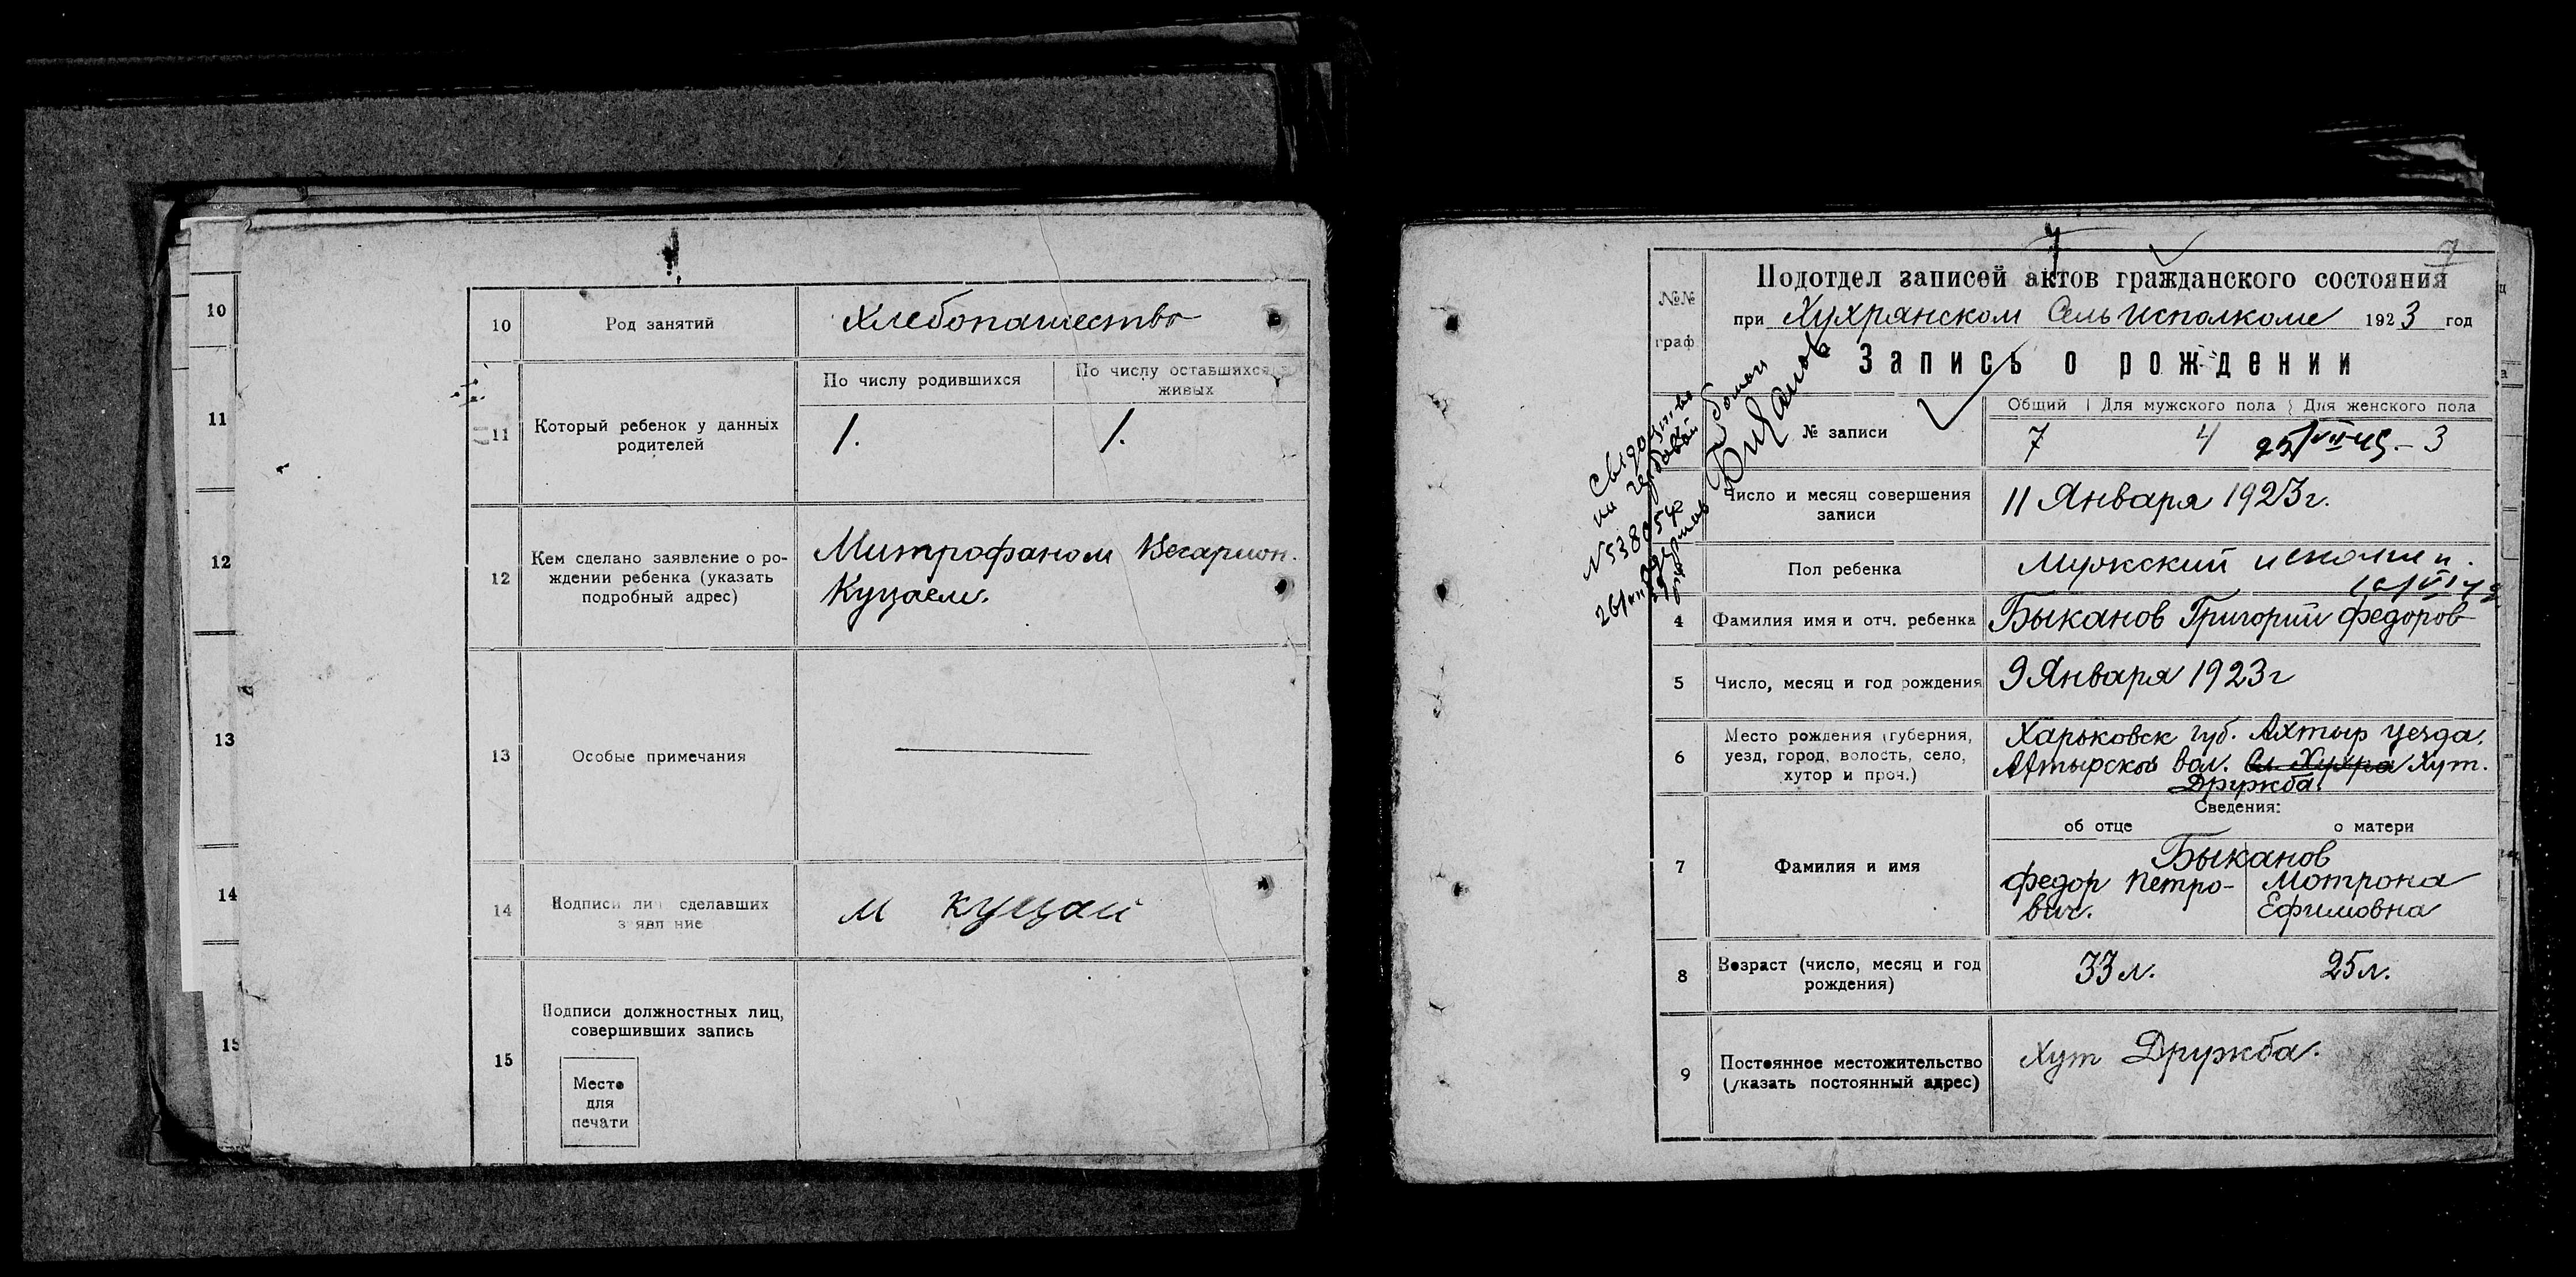 10
11
12
13
14
15
10 Род занятий Хлебопашество
11 Который ребенок у данных родителей
По числу родившихся По числу оставшихся живых
1. 1.
12 Кем сделано заявление о ро-
ждении ребенка (указать
подробный адрес)
Митрофаном Весарион.
Куцаем.
13 Особые примечания
14 Подписи лиц сделавших
заявление
М Куцай
15 Подписи должностных лиц,
совершивших запись
Место
для
печати
7
7
№№
граф
Подотдел записей актов гражданского состояния
при Хухрянском Сельисполкоме 1923 год
Запись о рождении
№ записи
Общий Для мужского пола Для женского пола
7 4 3
Число и месяц совершения
записи
11 Января 1923г.
Пол ребенка Мужский
4 Фамилия имя и отч. ребенка Быканов Григорий Федоров
5 Число, месяц и год рождения 9 Января 1923г
6 Место рождения (губерния,
уезд, город, волость, село,
хутор и проч.)
Харьковск губ. Ахтыр уезда.
Ахтырской вол. Сл. Хухра Хут.
Дружба.
Сведения:
об отце о матери
7 Фамилия и имя
Быканов
Федор Петро- Мотрона
вич. Ефимовна
8 Возраст (число, месяц и год
рождения)
33 л. 25 л.
9 Постоянное местожительство
(указать постоянный адрес)
Хут Дружба.
Свидоцтво
на
Биканов